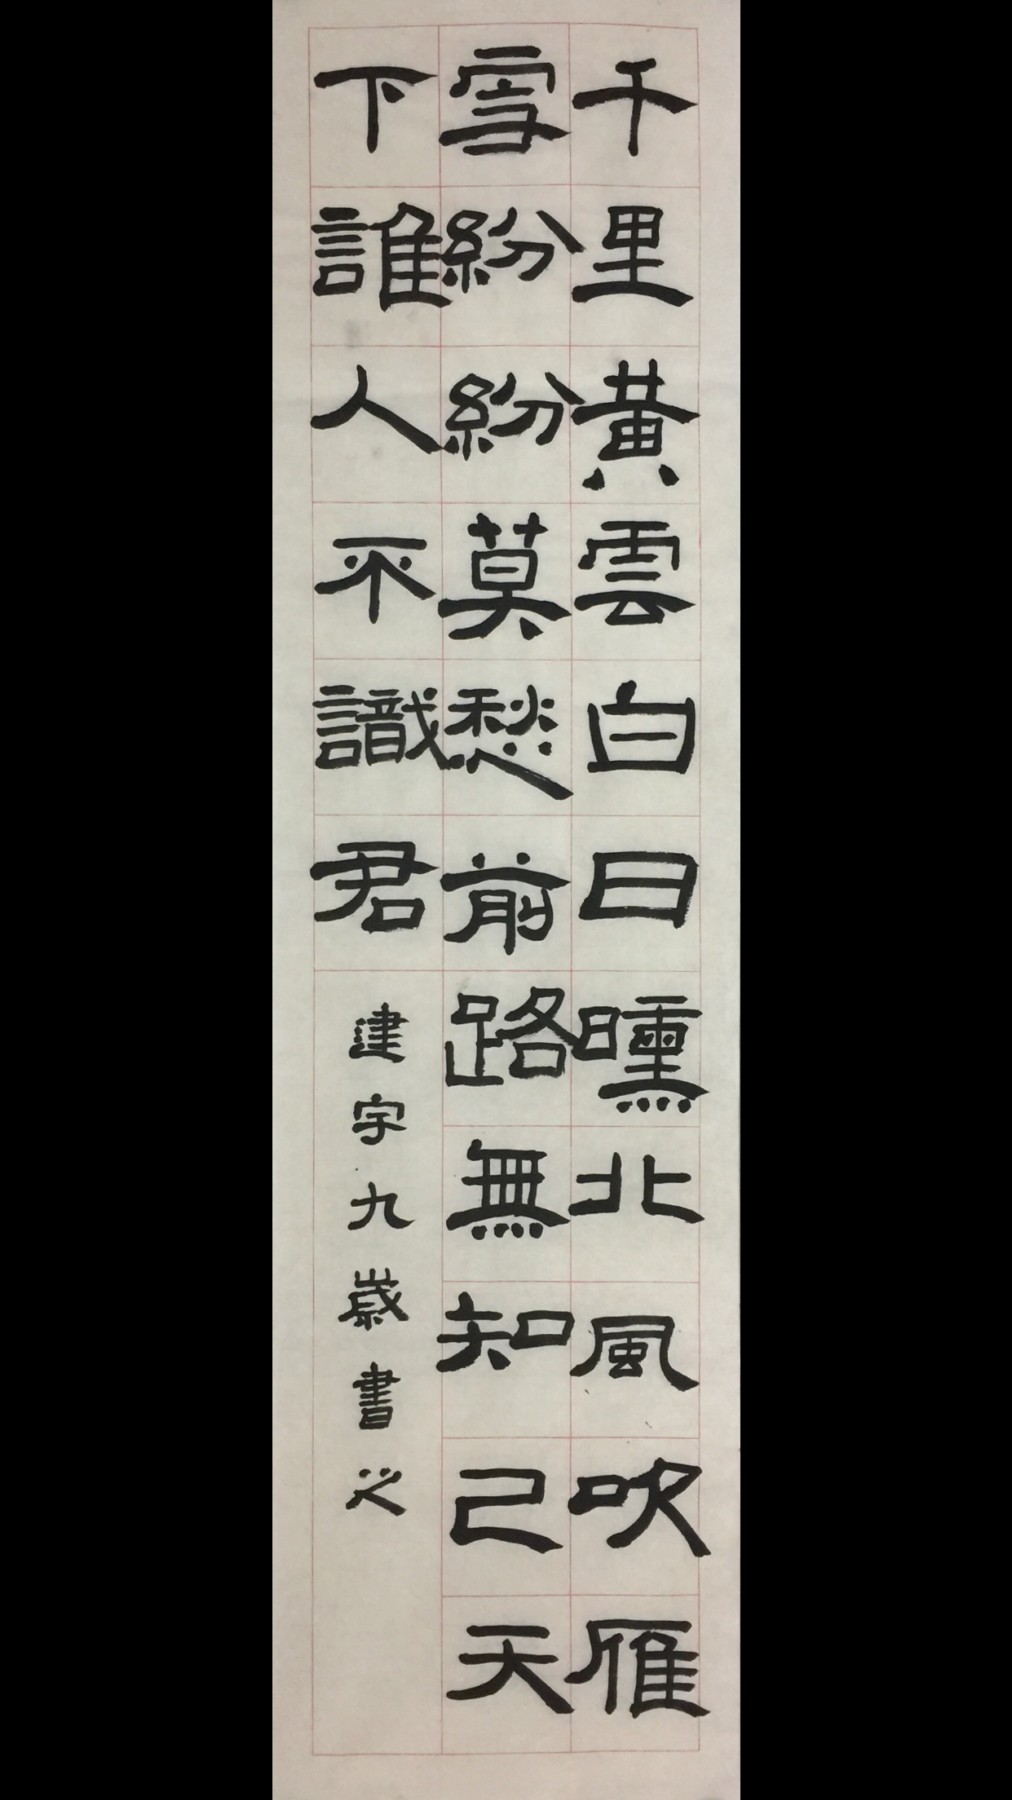 千里黃雲白日曛北風吹雁
雪紛紛莫愁前路無知己天
下誰人不識君
建宇九歲書之